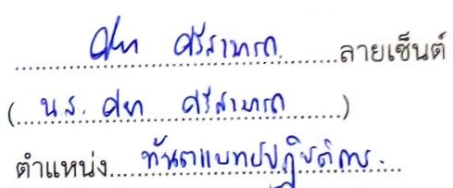 ศยา ศรีสามารถ ลายเซ็นต์
( น.ส. ศยา ศรีสามารถ )
ตำแหน่ง ทันตแพทย์ปฏิบัติการ